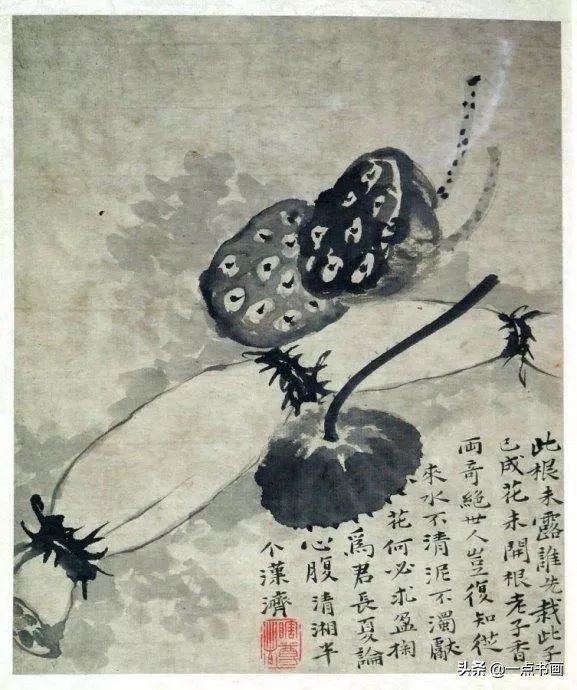 此根未露誰先栽此子
已成花未開根老子香
両奇絕世人豈復知從
來水不清泥不濁獻
花何必求盈掬
爲君長夏論
心腹清湘半
个漢濟
头条 @一点书画